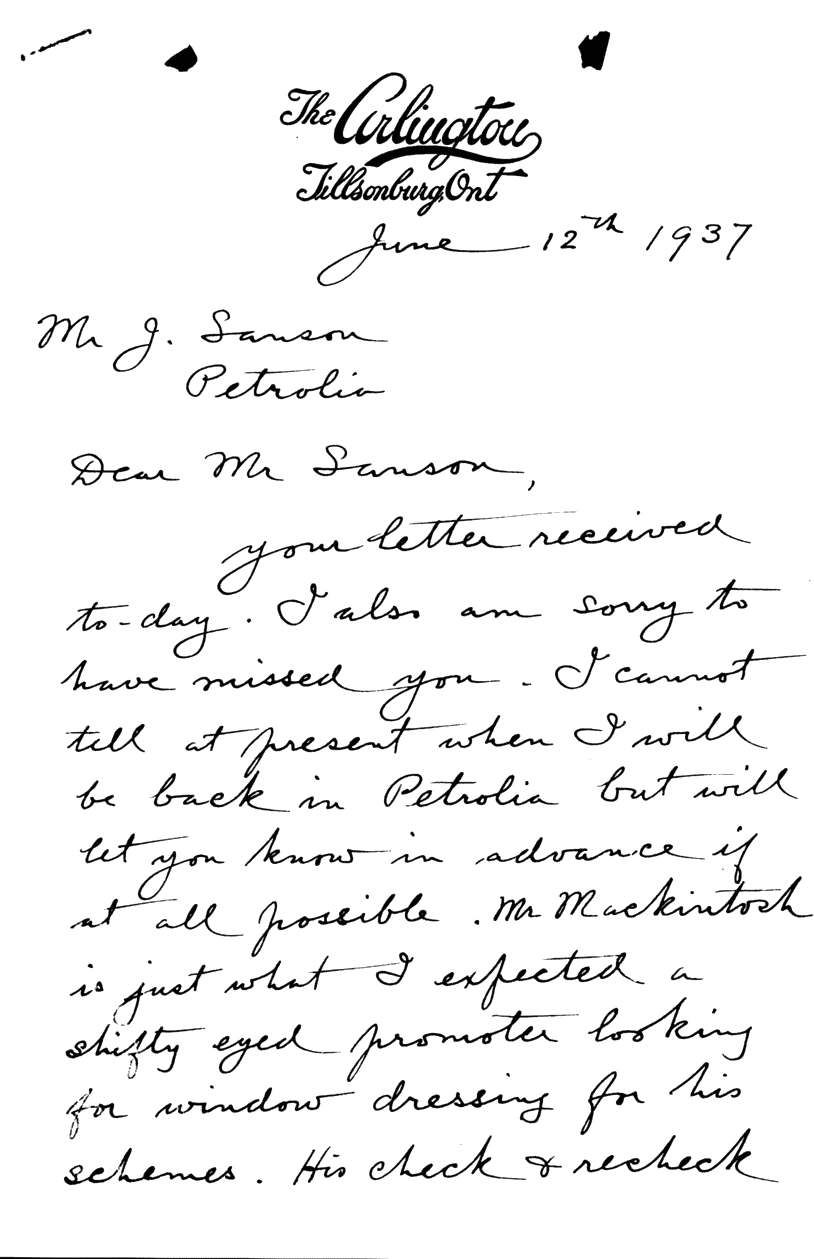 The Arlington
Tillsonburg, Ont
June 12th 1937
Mr J. Sanson
Petrolia
Dear Mr Sanson,
your letter received
to-day. I also am sorry to
have missed you. I cannot
tell at present when I will
be back in Petrolia but will
let you know in advance if
at all possible. Mr Mackintosh
is just what I expected a
shifty eyed promoter looking
for window dressing for his
schemes. His check & recheck